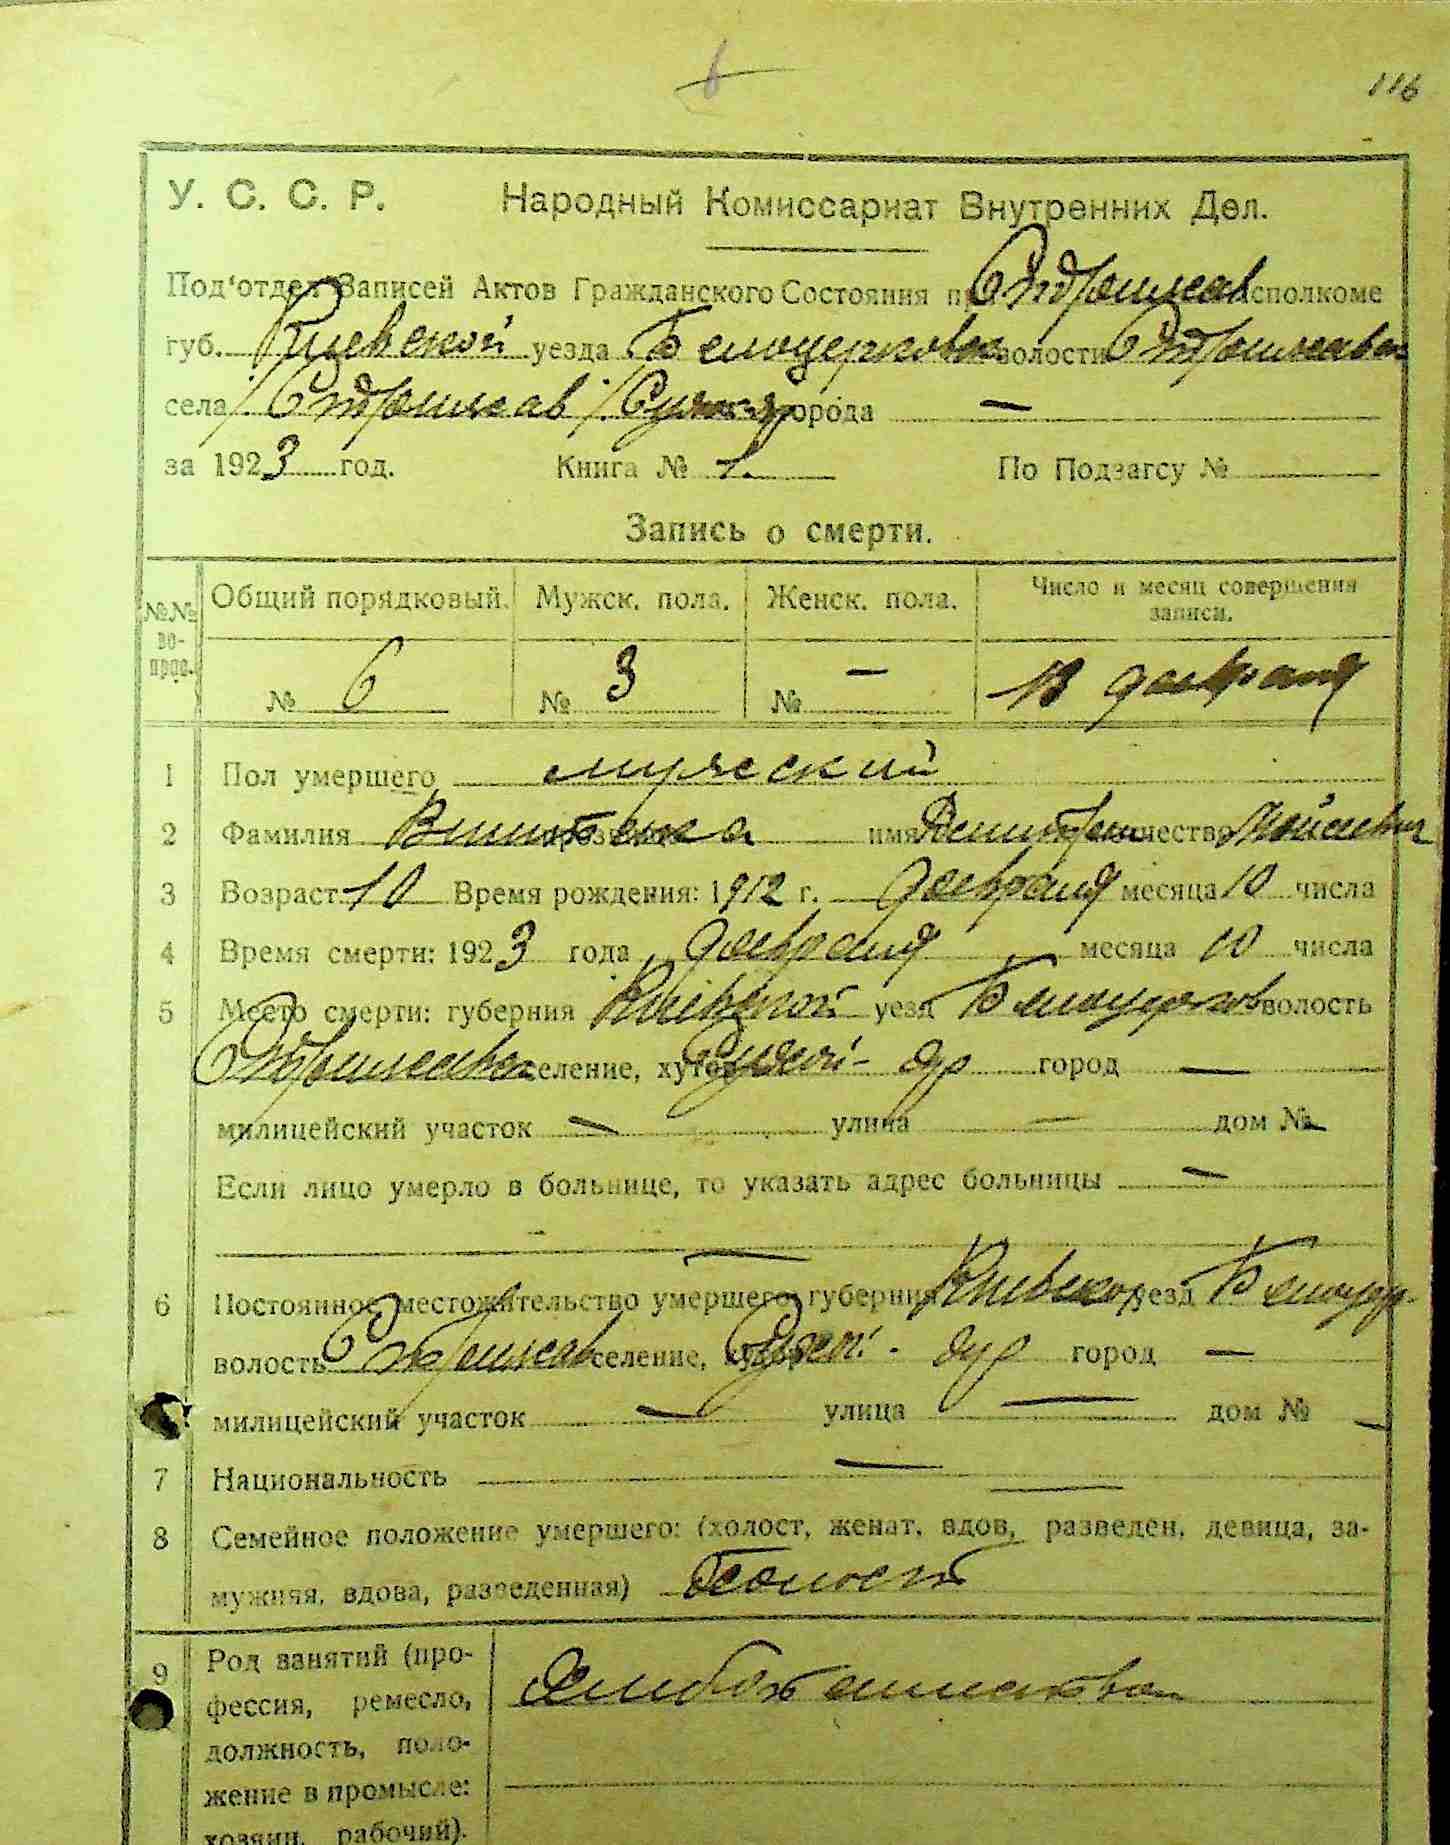 116
У. С. С. Р. Народный Комиссариат Внутренних Дел.
Под'отдел Записей Актов Гражданского Состояния п Стрижав сполкоме
губ. Киевской уезда Белоцерковск волости Стрижавск
села Стрижав города —
за 1923 год. Книга № 1 По Подзагсу №
Запись о смерти.
№№ вопрос. Общий порядковый. Мужск. пола. Женск. пола. Число и месяц совершения записи.
№ 6 № 3 № — 13 февраля
1 Пол умершего мужской
2 Фамилия имя Дмитрий
3 Возраст 10 Время рождения: 1912 г. февраля месяца 10 числа
4 Время смерти: 1923 года февраля месяца 10 числа
5 Место смерти: губерния Киевской уезд Белоцерков волость
Стрижавск селение, хутор город —
милицейский участок — улица — дом № —
Если лицо умерло в больнице, то указать адрес больницы —
—
6 Постоянное местожительство умершего: губерния Киевской уезд Белоцер-
волость Стрижав селение, хутор город —
милицейский участок — улица — дом № —
7 Национальность —
8 Семейное положение умершего: (холост, женат, вдов, разведен, девица, за-
мужняя, вдова, разведенная) холост
9 Род занятий (про-
фессия, ремесло,
должность, поло-
жение в промысле:
хозяин, рабочий).